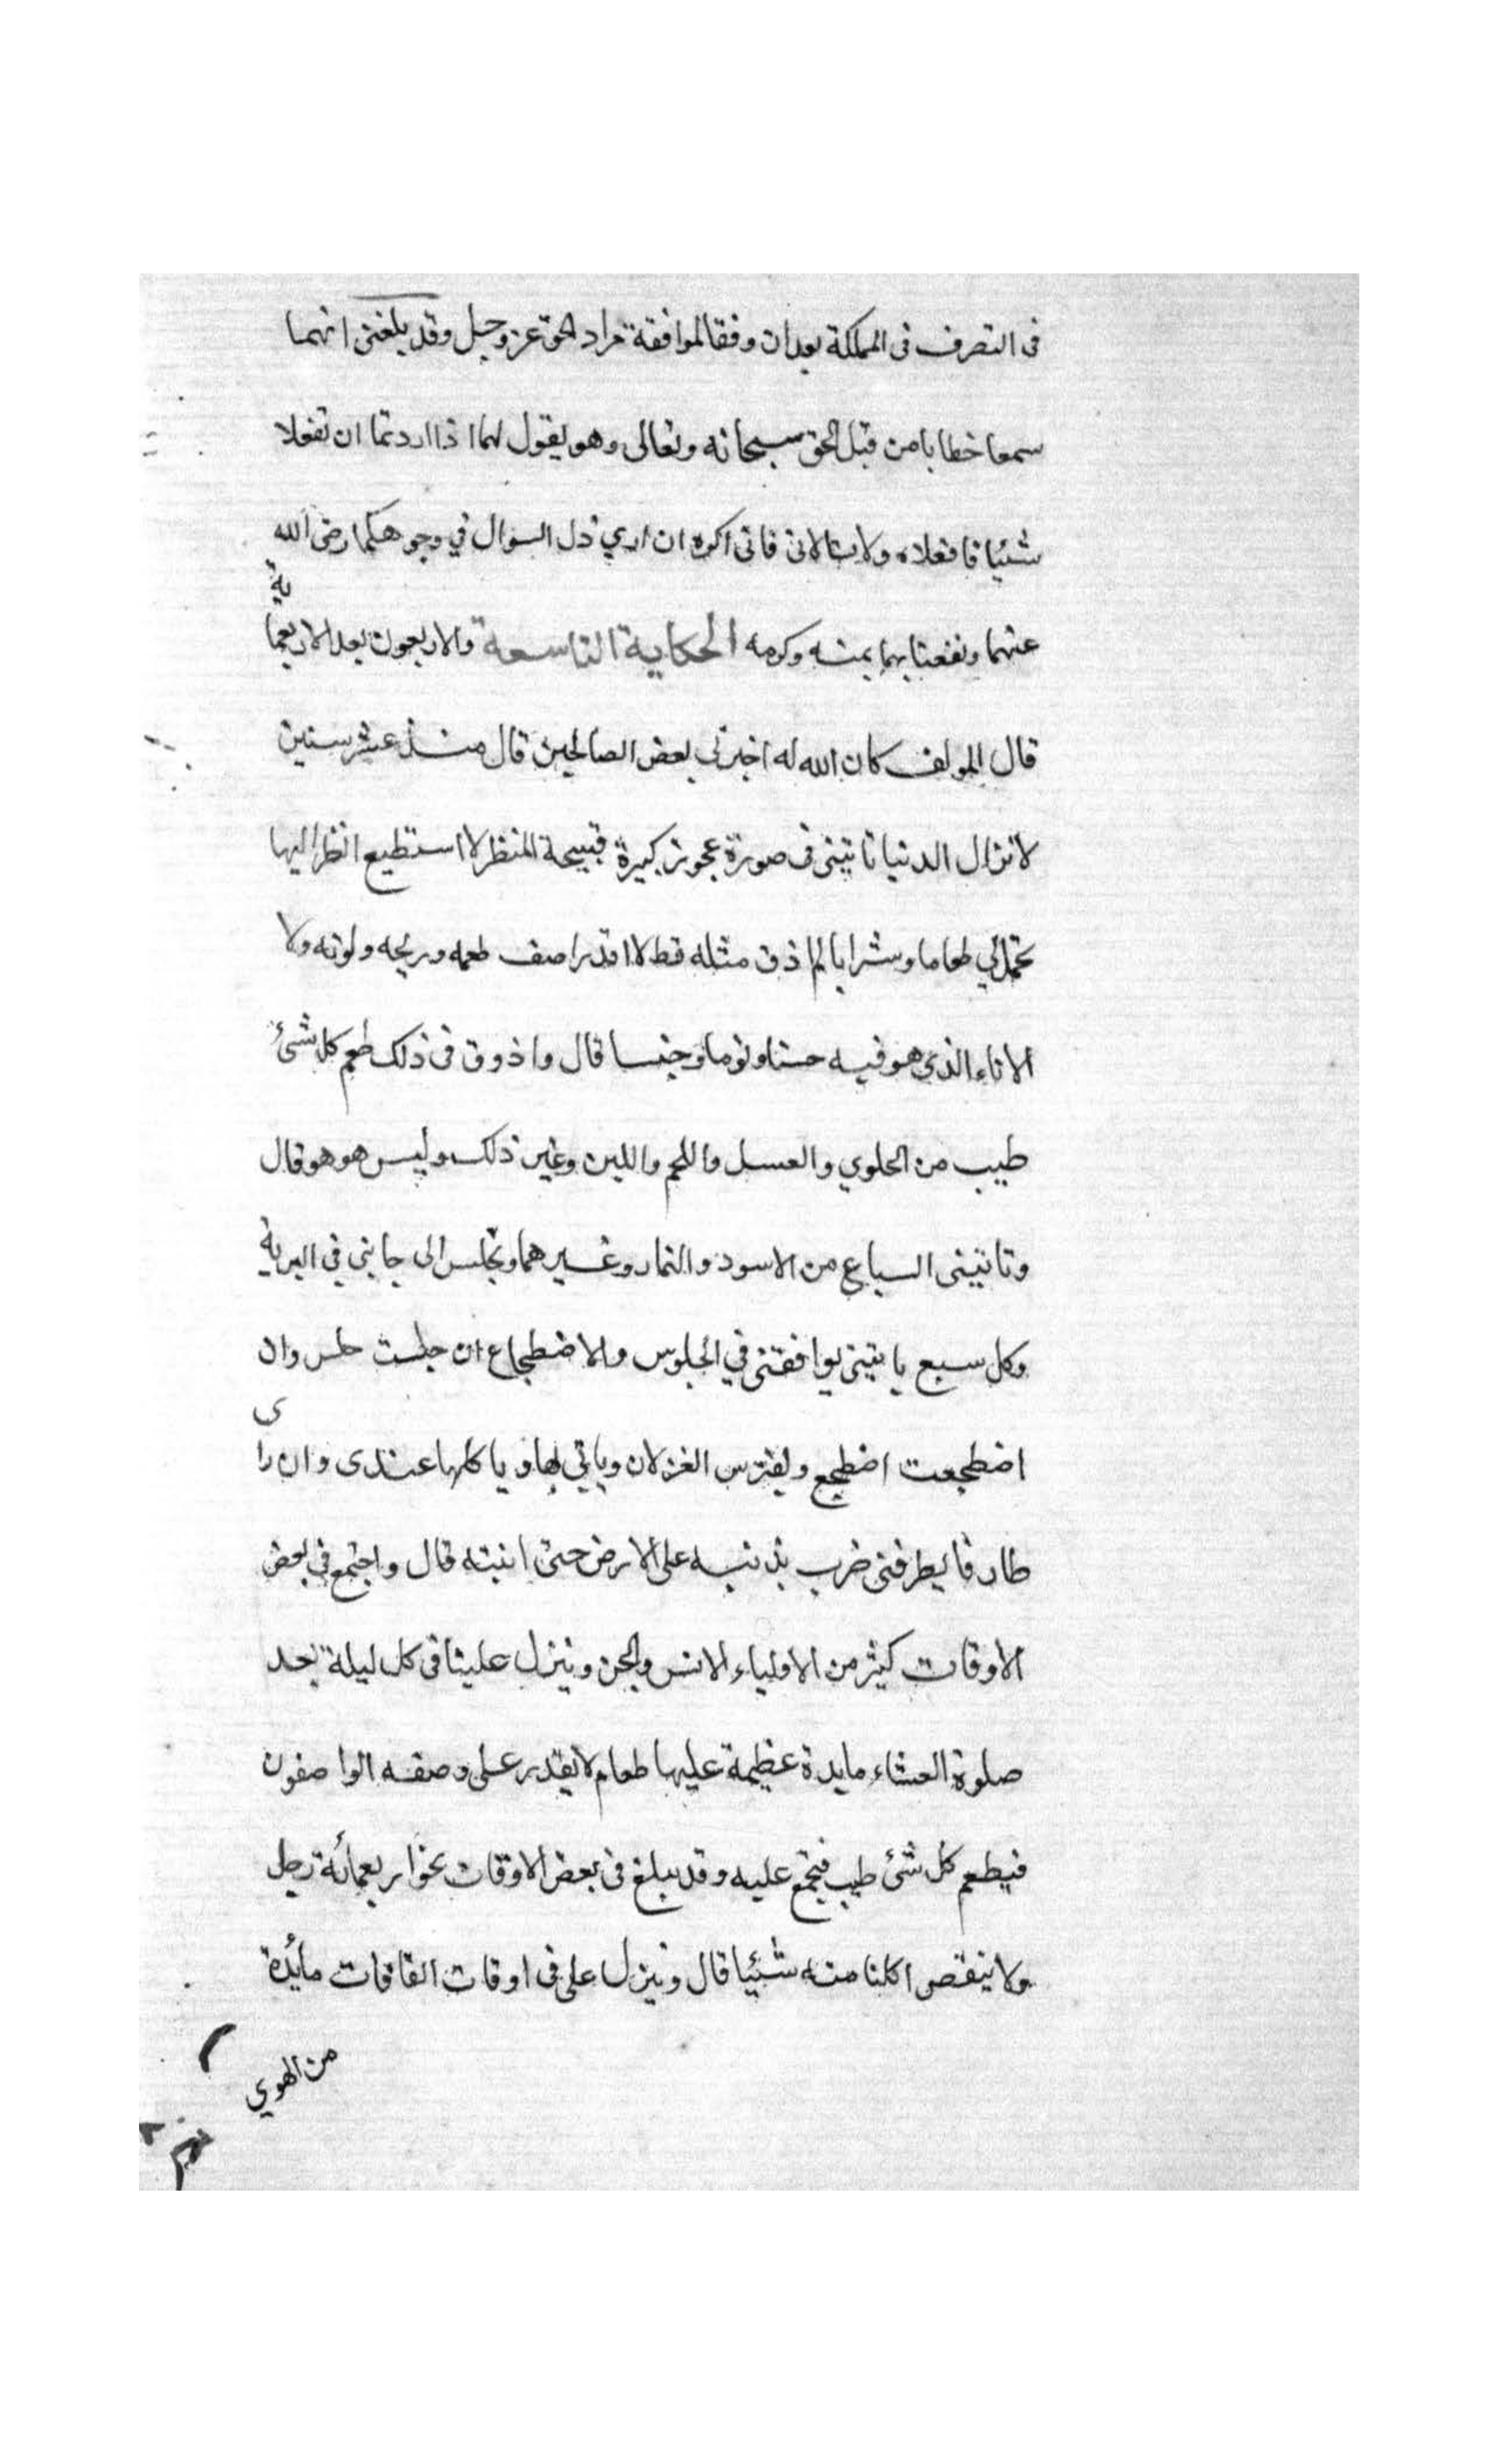 فى التصرف فى المملكة بعد ان وفقا لموافقة مراد الحق عز وجل وقد بلغنى انهما
سمعا خطابا من قبل الحق سبحانه وتعالى وهو يقول لهما اذا اردتما ان تفعلا
شئيا فافعلاه ولا تسالانى فانى اكره ان ارى ذل السوال في وجوهكما رضى الله
عنهما ونفعنا بهما بمنه وكرمه الحكاية التاسعة والاربعون بعد الاربعما
ية
قال المولف كان الله له اخبرنى بعض الصالحين قال منذ عشر سنين
لا تزال الدنيا تاتينى فى صورة عجوز كبيرة قبيحة المنظر لا استطيع انظر اليها
تحمل لي طعاما وشرابا لم اذق مثله قط لا اقدر اصف طعمه وريحه ولونه ولا
الاناء الذى هو فيه حسنا ولونا وجنسا قال واذوق فى ذلك طعم كل شئ
طيب من الحلوي والعسل واللحم واللبن وغير ذلك وليس هو هو قال
وتاتينى السباع من الاسود والنمار وغيرهما وتجلس الى جانبي في البرية
وكل سبع ياتينى يوافقنى في الجلوس والاضطجاع ان جلست جلس وان
اضطجعت اضطجع ويفترس الغزلان وياتي بها وياكلها عندى وان را
ى
طارفا يطرفنى ضرب بذنبه على الارض حتى انتبه قال واجتمع في بعض
الاوقات كثير من الاولياء الانس والجن وينزل علينا فى كل ليلة بعد
صلوة العشاء مايدة عظيمة عليها طعام لا يقدر على وصفه الواصفون
فيطعم كل شئ طيب فنجتمع عليه وقد يبلغ فى بعض الاوقات نحو اربعمائة رجل
ولا ينقص اكلنا منه شئيا قال وينزل على فى اوقات الفاقات مائدة
من الهوي